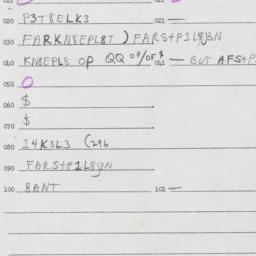 020 P3T8ELK3 021 —
030 FARKN8EPL8T ) FARS+P1L8J3N
040 KN8EPL8 OP QQ OP/OF$ 041 — BUT AFS+P
050 O
060 $
070 $
080 14K3L3 (296
090 FARS+P1L8J3N
100 8ANT 101 —